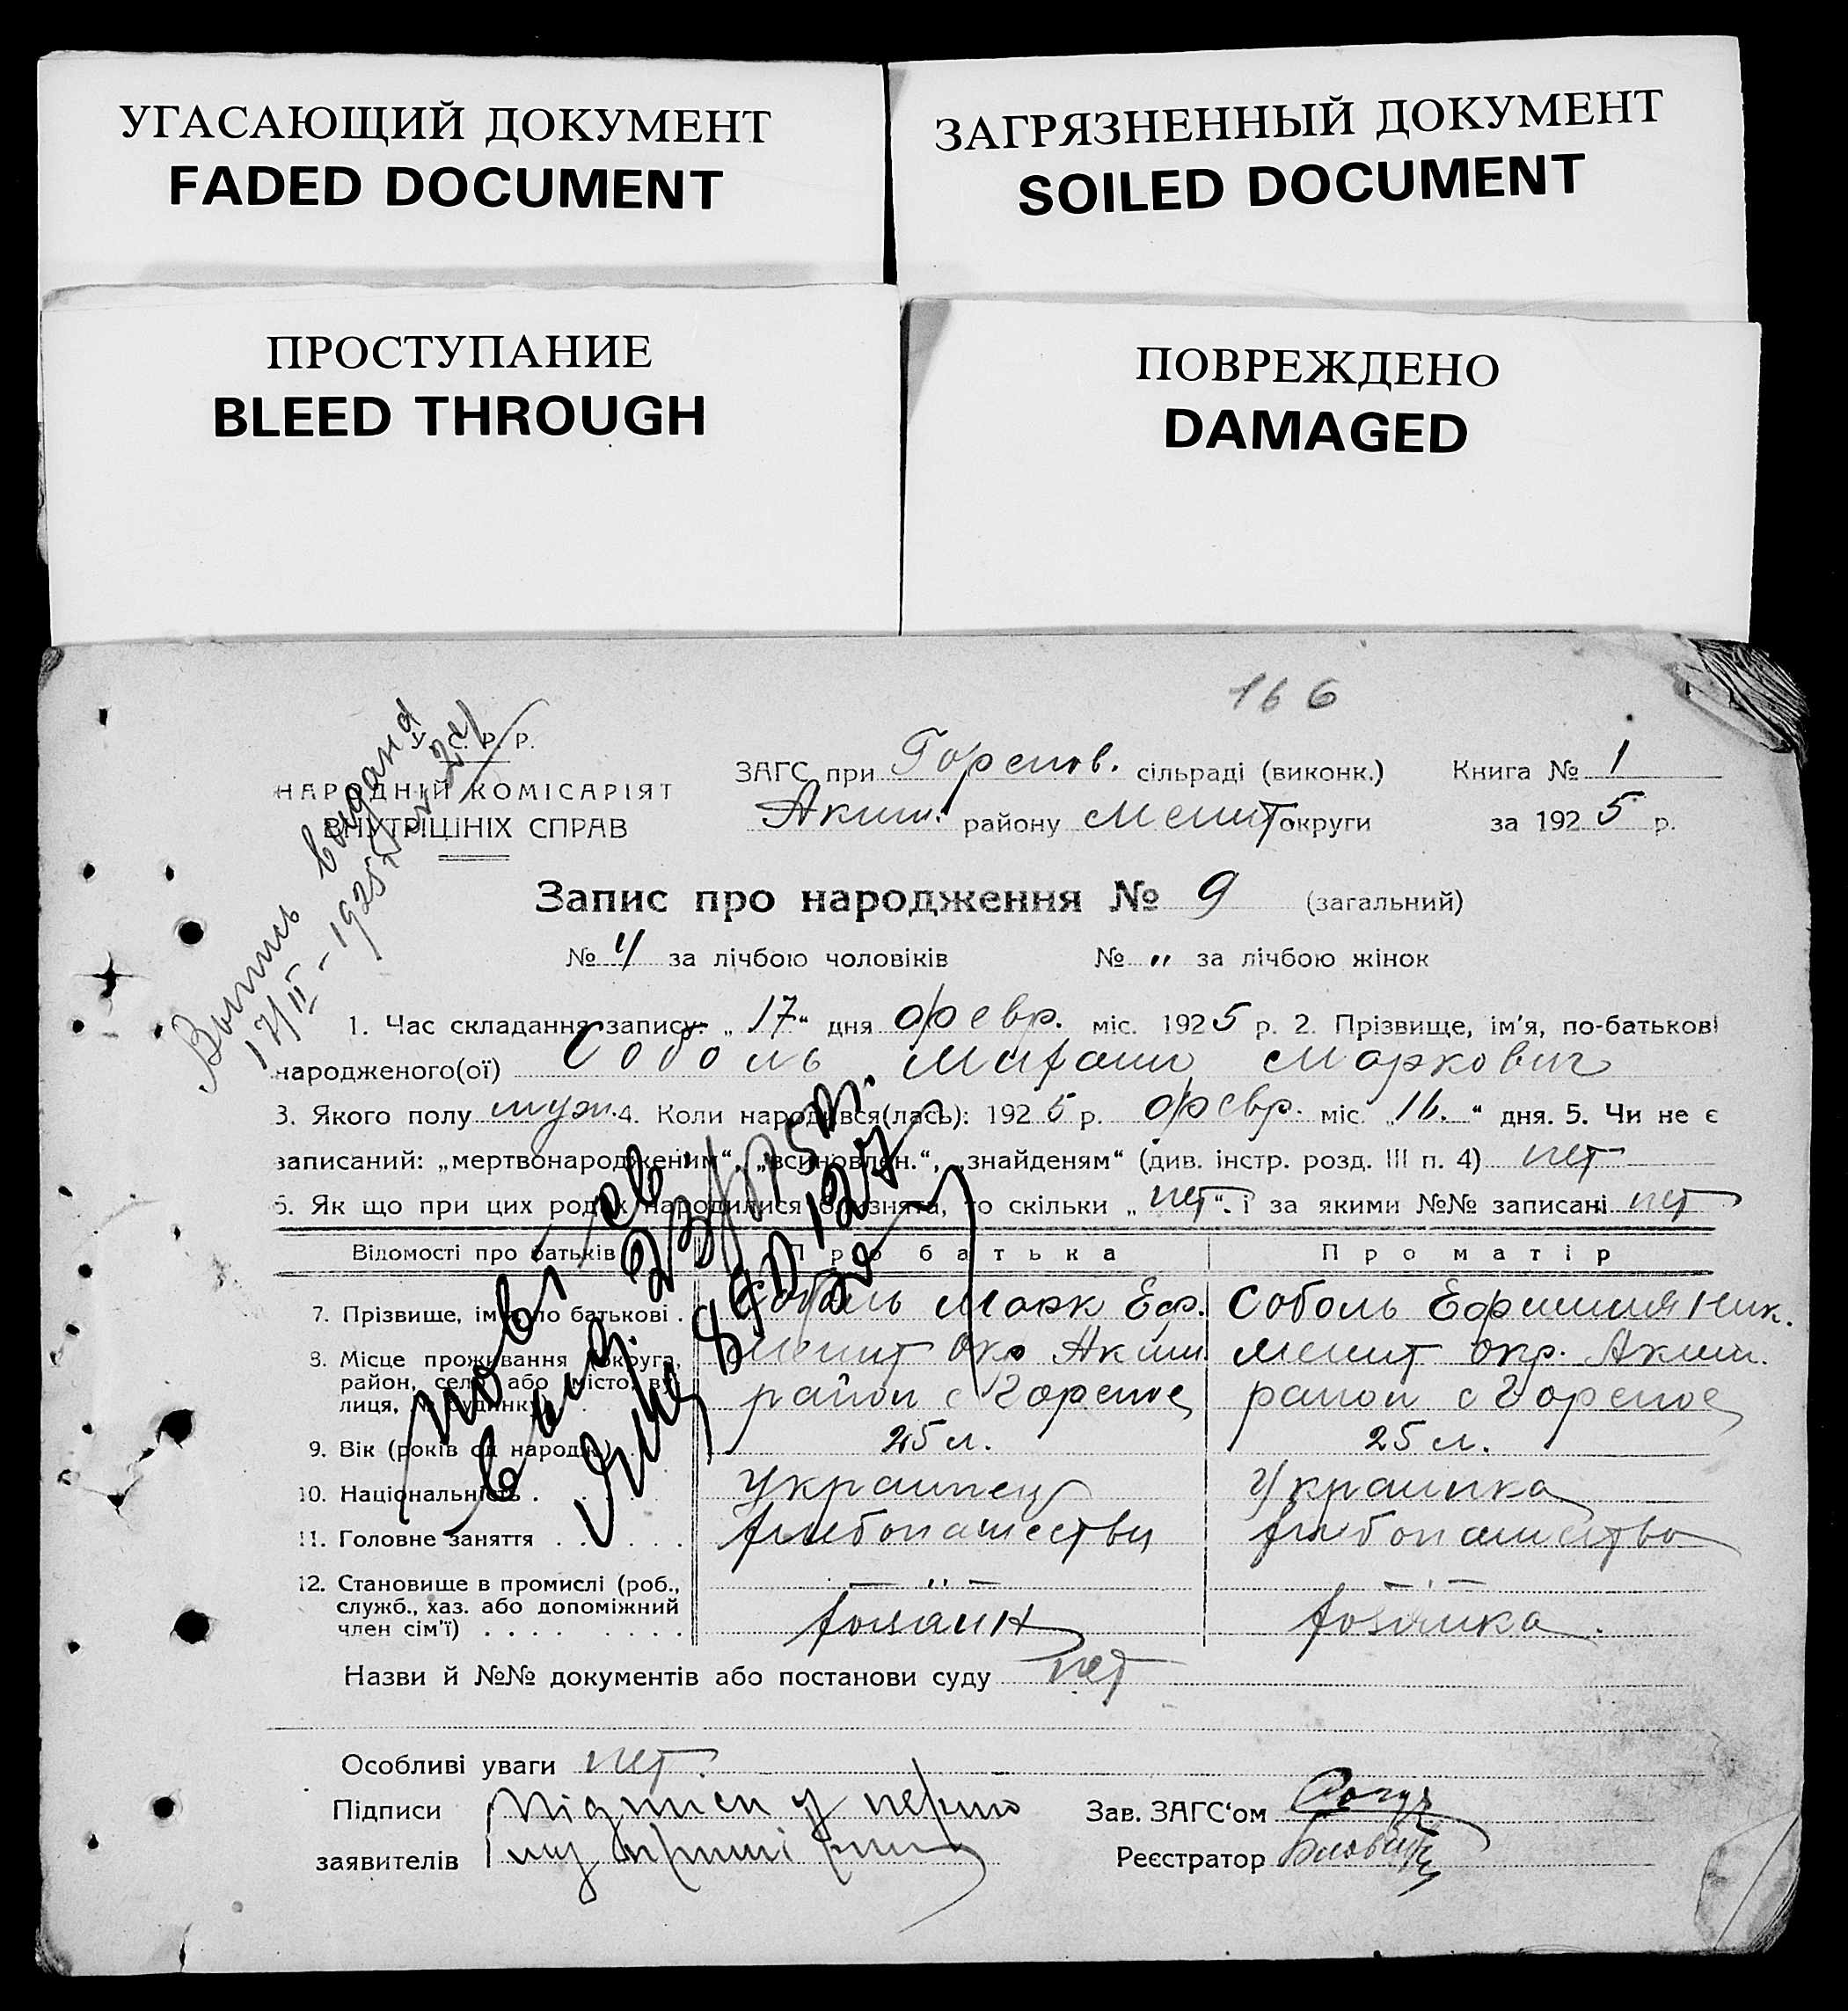 УГАСАЮЩИЙ ДОКУМЕНТ
FADED DOCUMENT
ЗАГРЯЗНЕННЫЙ ДОКУМЕНТ
SOILED DOCUMENT
ПРОСТУПАНИЕ
BLEED THROUGH
ПОВРЕЖДЕНО
DAMAGED
166
У. С. Р. Р.
НАРОДНІЙ КОМІСАРІЯТ
ВНУТРІШНІХ СПРАВ
ЗАГС при Горепов. сільраді (виконк.) Книга № 1
Аким. району Мелит округи за 1925 р.
Выпись видана
17/II - 1925
Запис про народження № 9 (загальний)
№ 4 за лічбою чоловіків № „ за лічбою жінок
1. Час складання запису: „17“ дня февр. міс. 1925 р. 2. Прізвище, ім'я, по-батькові
народженого(ої) Соболь Маркович
3. Якого полу муж. 4. Коли народився(лась): 1925 р. февр. міс. „16.“ дня. 5. Чи не є
записаний: „мертвонародженим“, „всиновлен.“, „знайденям“ (див. інстр. розд. III п. 4) нет
6. Як що при цих родах народилися близнята, то скільки „нет“. і за якими №№ записані нет
Відомості про батьків Про батька Про матір
7. Прізвище, ім'я по батькові . Соболь Марк Еф. Соболь Ник.
8. Місце проживання (округа, район, село або місто, вулиця, № будинку) Мелит окр Аким. Мелит окр. Аким.
район с район с
9. Вік (років од народж.) 25 л. 25 л.
10. Національність . Украинец Украинка
11. Головне заняття . . . . . . хлебопашество хлебопашество
12. Становище в промислі (роб., — „ — — „ —
служб., хаз. або допоміжний
член сім'ї) . . . . . . . . хозаин хозаика
Назви й №№ документів або постанови суду нет
Особливі уваги нет.
Підписи Підписи у першо
заявителів му
Зав. ЗАГС‘ом
Реєстратор